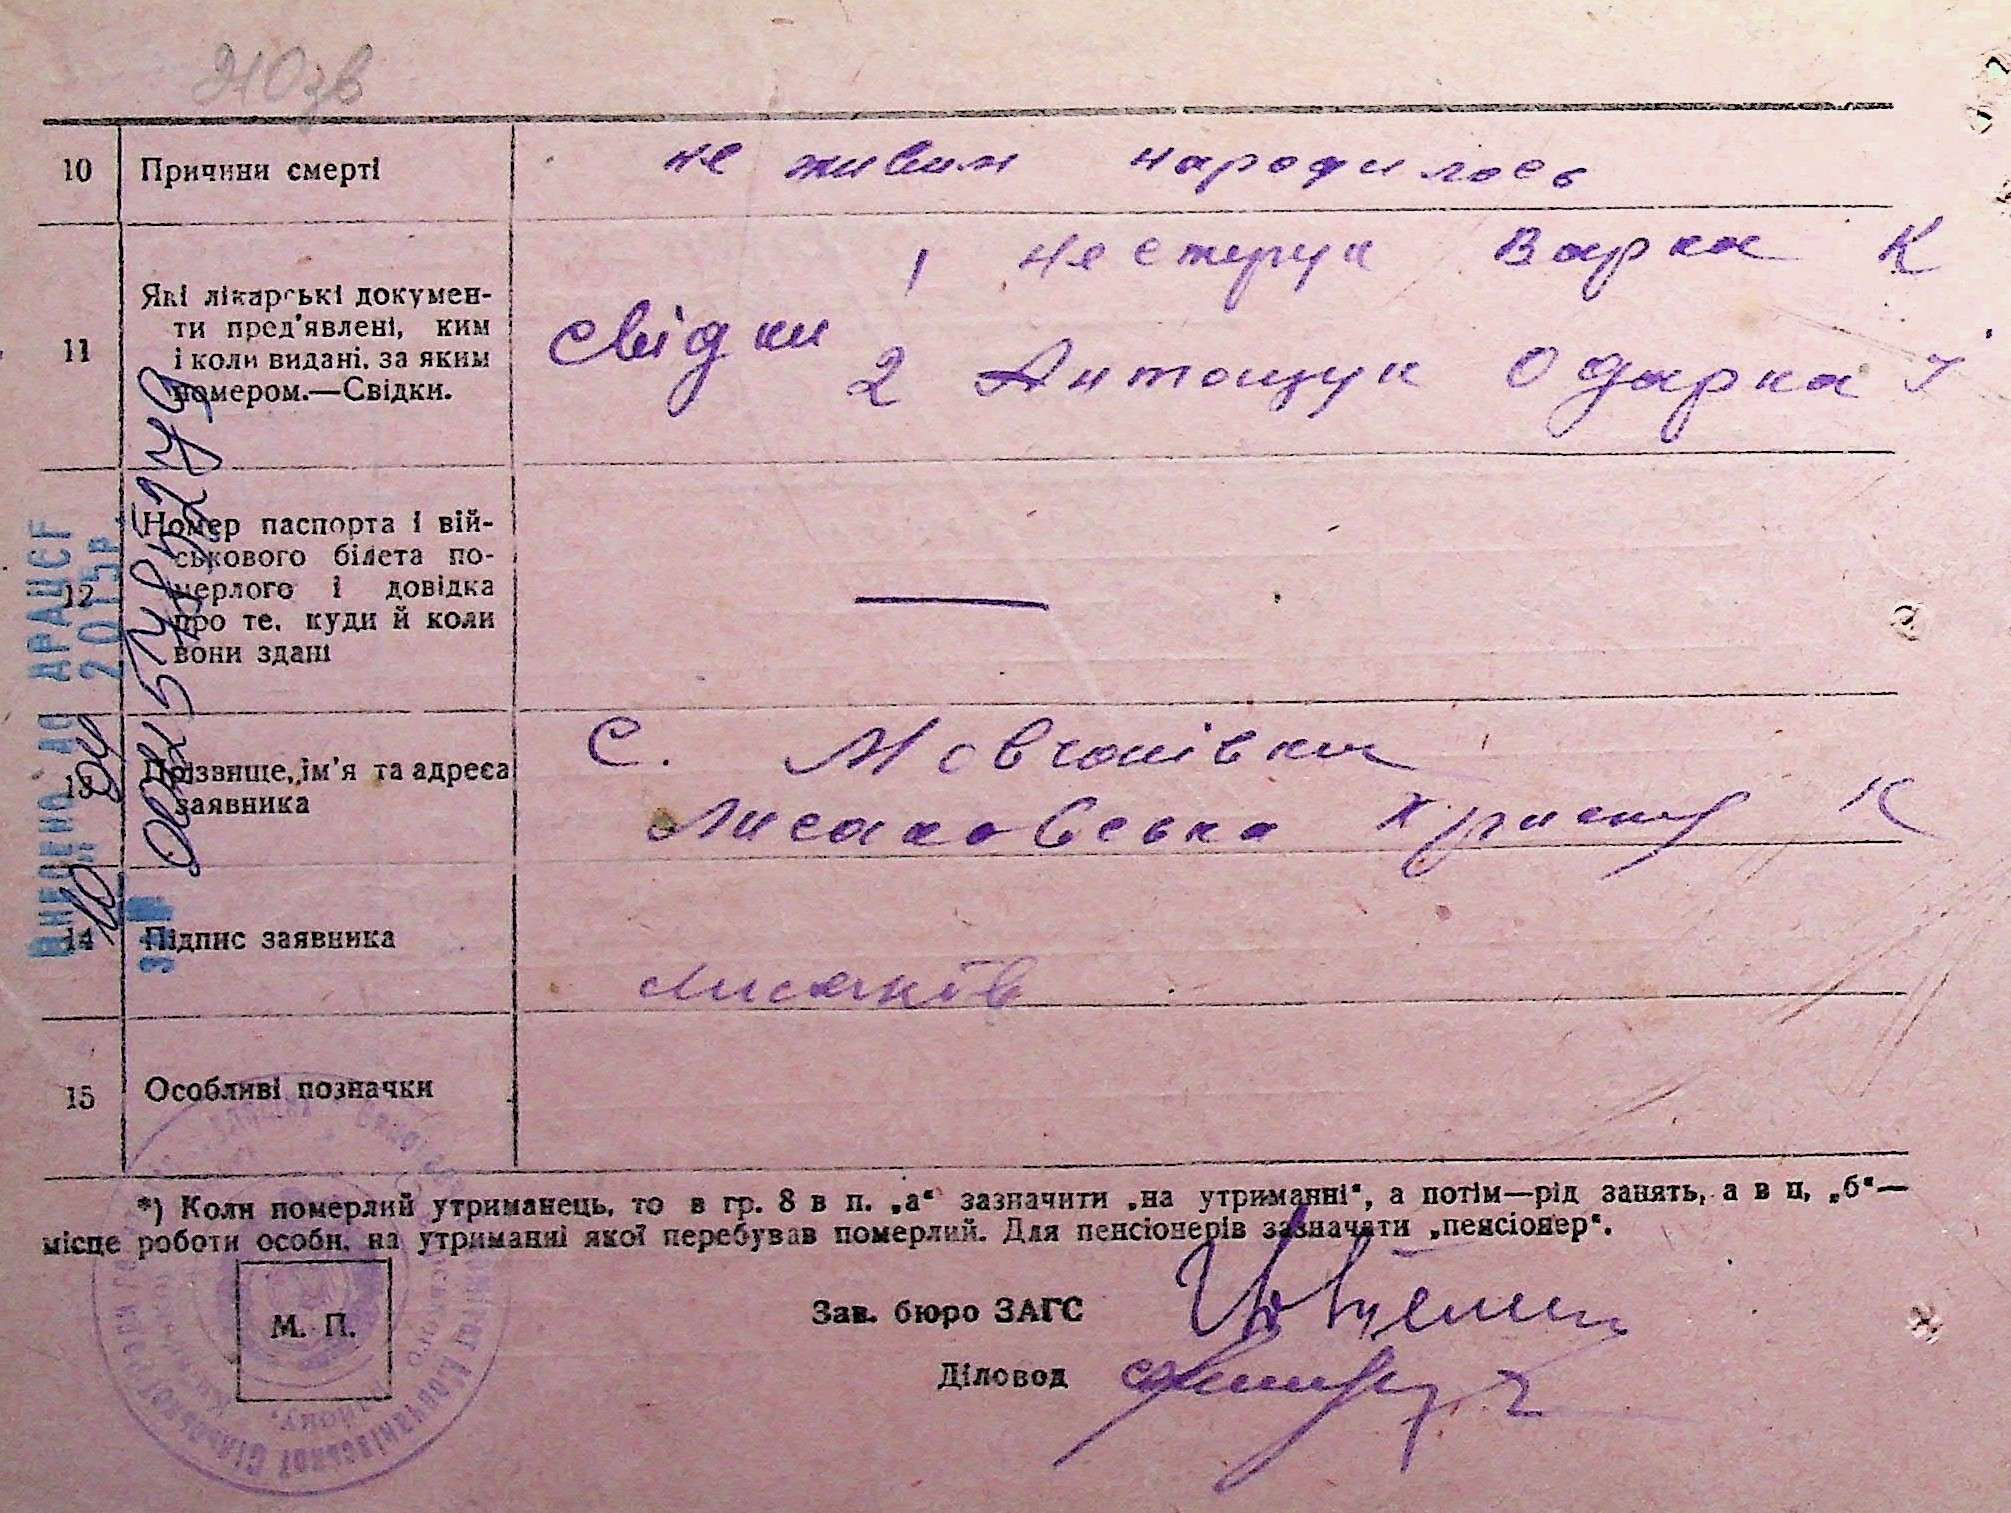 10 Причини смерті не живим народилось
11 Які лікарські докумен-
ти пред'явлені, ким
і коли видані, за яким
номером.—Свідки.
Свідки
1 Нестерук Варка К
2 Антощук Одарка
12 Номер паспорта і вій-
ськового білета по-
мерлого і довідка
про те, куди й коли
вони здані
—
13 Прізвище, ім'я та адреса
заявника
С. Мовчанівка
Лисаковська Христя К
14 Підпис заявника
Лисаків
15 Особливі позначки
*) Коли померлий утриманець, то в гр. 8 в п. „а“ зазначити „на утриманні“, а потім—рід занять, а в п. „б“—
місце роботи особи, на утриманні якої перебував померлий. Для пенсіонерів зазначати „пенсіонер“.
М. П.
Зав. бюро ЗАГС
Діловод
ВНЕСЕНО ДО ДРАЦСГ
10 04 2015р.
за №
Мовчанівської сільської ради